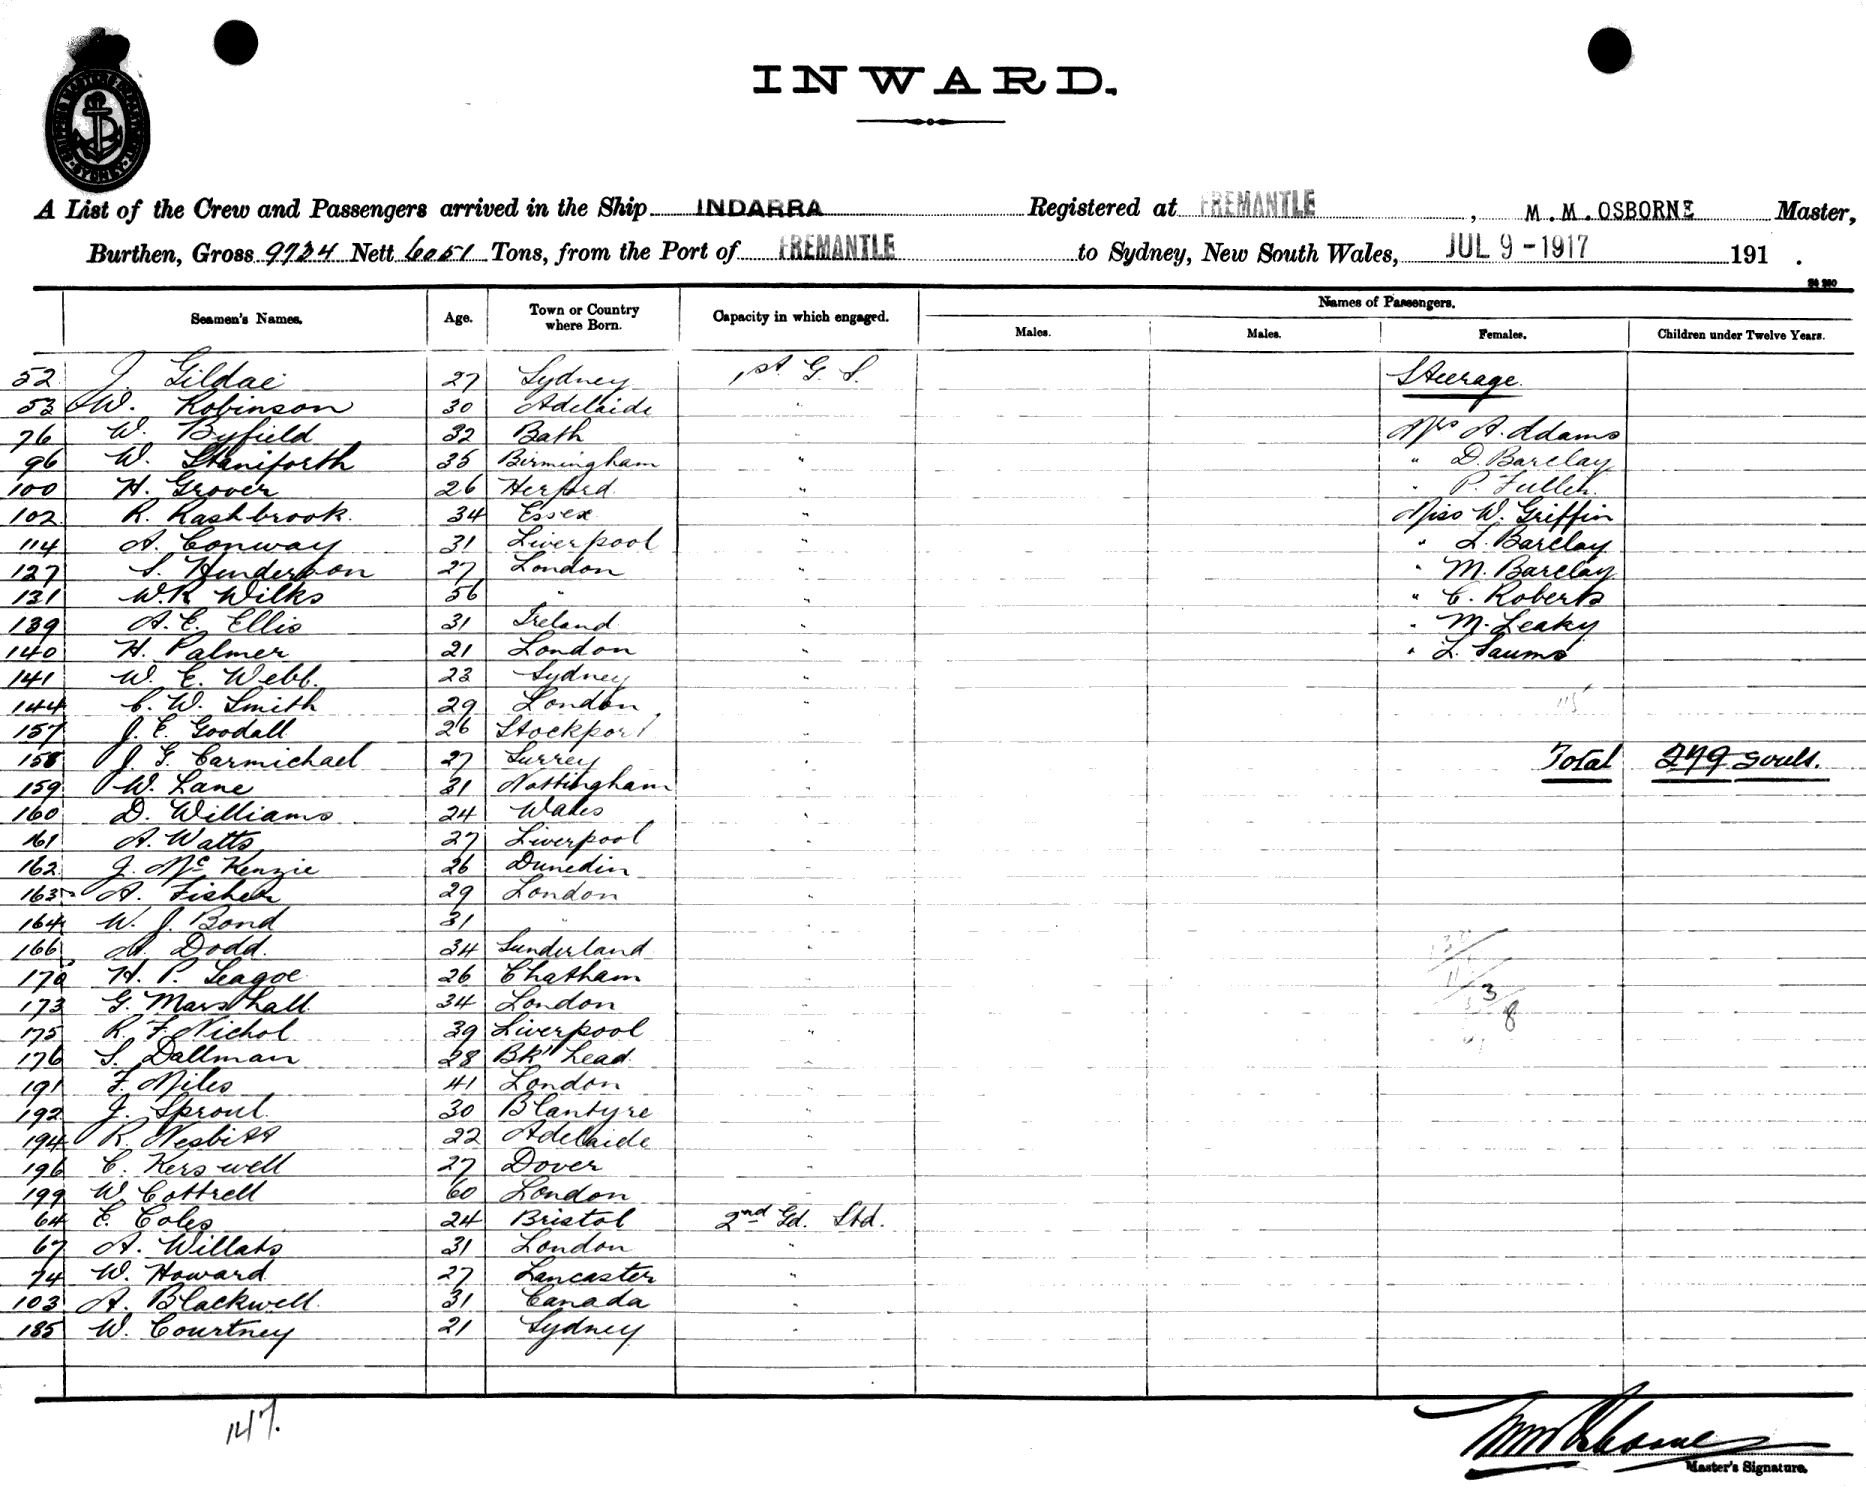 INWARD.
SHIPPING MASTERS DEPARTMENT SYDNEY
A List of the Crew and Passengers arrived in the Ship INDARRA Registered at FREMANTLE, M.M.OSBORNE Master,
Burthen, Gross 9734 Nett 6051 Tons, from the Port of FREMANTLE to Sydney, New South Wales, JUL 9-1917 191 .
Names of Passengers.
Seamen's Names. Age. Town or Country where Born. Capacity in which engaged. Males. Males. Females. Children under Twelve Years.
52 J. Gildae 27 Sydney 1st G. S. Steerage
53 W. Robinson 30 Adelaide "
76 W. Byfield 32 Bath " Mrs A. Adams
96 W. Staniforth 35 Birmingham " " D. Barclay
100 H. Grover 26 Herford " " P. Fuller
102 R. Rashbrook 34 Essex " Miss W. Griffin
114 A. Conway 31 Liverpool " " L. Barclay
127 S. Henderson 27 London " " M. Barclay
131 W.R. Wilks 56 " " " C. Roberts
139 A. E. Ellis 31 Ireland " " M. Leaky
140 H. Palmer 21 London " " L. Saums
141 W. E. Webb. 23 Sydney "
144 C. W. Smith 29 London "
157 J. E. Goodall 26 Stockport "
158 J. G. Carmichael 27 Surrey " Total 279 souls.
159 W. Lane 31 Nottingham "
160 D. Williams 24 Wales "
161 A. Watts 27 Liverpool "
162 J. McKenzie 26 Dunedin "
163 A. Fisher 29 London "
164 W. J. Bond 31 " "
166 A. Dodd. 34 Sunderland "
170 H. P. Seagoe 26 Chatham "
173 G. Marshall 34 London "
175 R. F. Nichol 39 Liverpool "
176 S. Dallman 28 Bk'head "
191 F. Miles 41 London "
192 J. Sproul 30 Blantyre "
194 R. Nesbitt 22 Adelaide "
196 C. Kerswell 27 Dover "
199 W. Cottrell 60 London "
64 E. Coles 24 Bristol 2nd Gd. Std.
67 A. Willats 31 London "
74 W. Howard 27 Lancaster "
103 A. Blackwell 31 Canada "
185 W. Courtney 21 Sydney "
147.
Master's Signature.